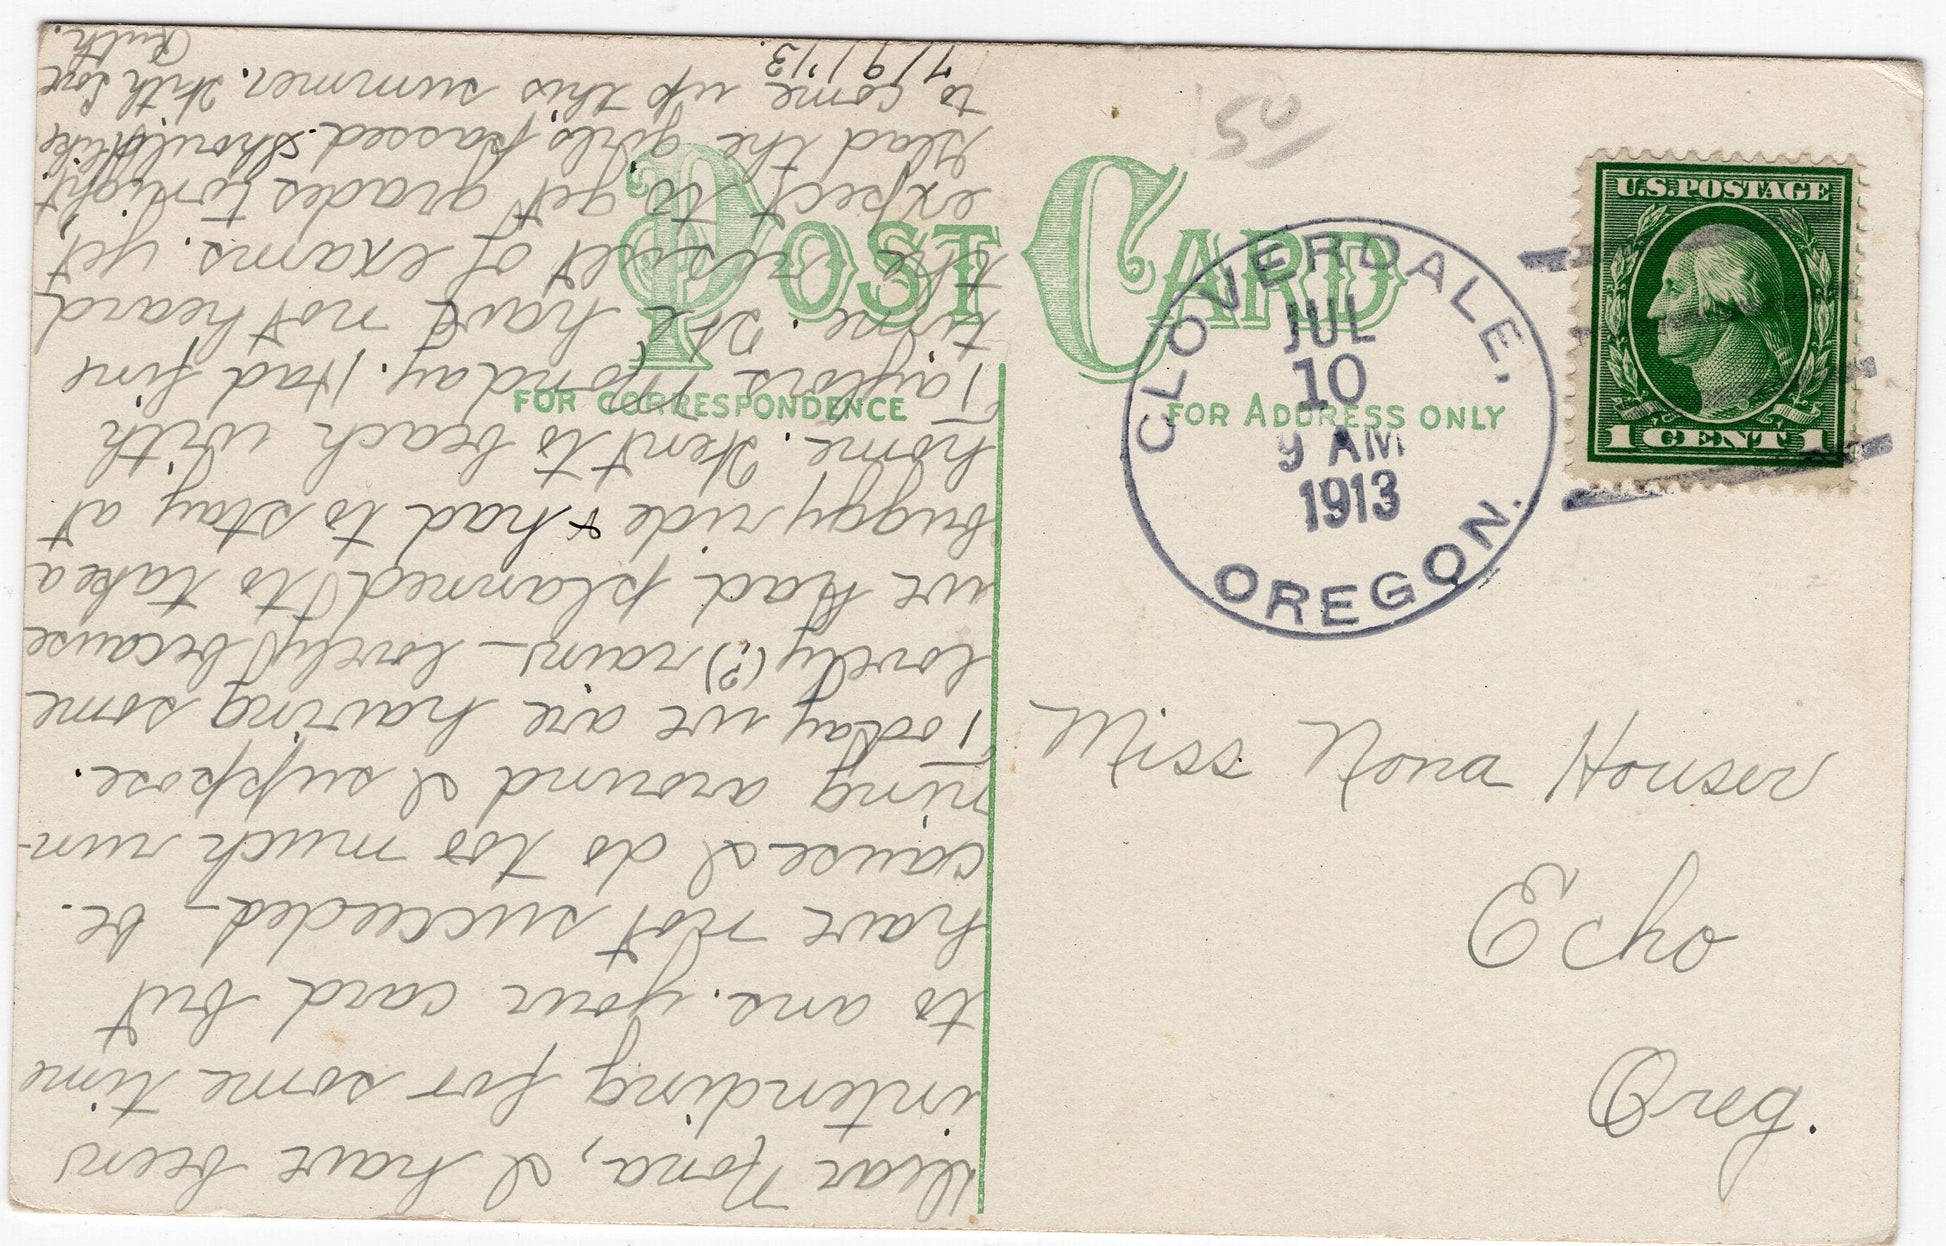 POST CARD
FOR CORRESPONDENCE
FOR ADDRESS ONLY
50/
CLOVERDALE,
JUL
10
9 AM
1913
OREGON.
U.S. POSTAGE
1 CENT 1
Miss Nona Houser
Echo
Oreg.
7/9/'13.
Dear Nona, I have been
intending for some time
to ans. your card but
have not succeeded - be-
cause I do too much run-
ning around I suppose.
Today we are having some
lovely (?) rain - lovely because
we had planned to take a
buggy ride & had to stay at
home. Went to beach with
Taylors Monday. Had fine
time. We have not heard
the result of exams. yet,
expect to get grades tonight
Glad the girls passed. Should like
to come up this summer. With love
Ruth.